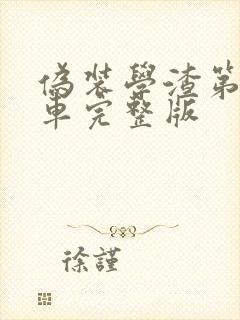 偽裝學渣第
車完整版
徐謹